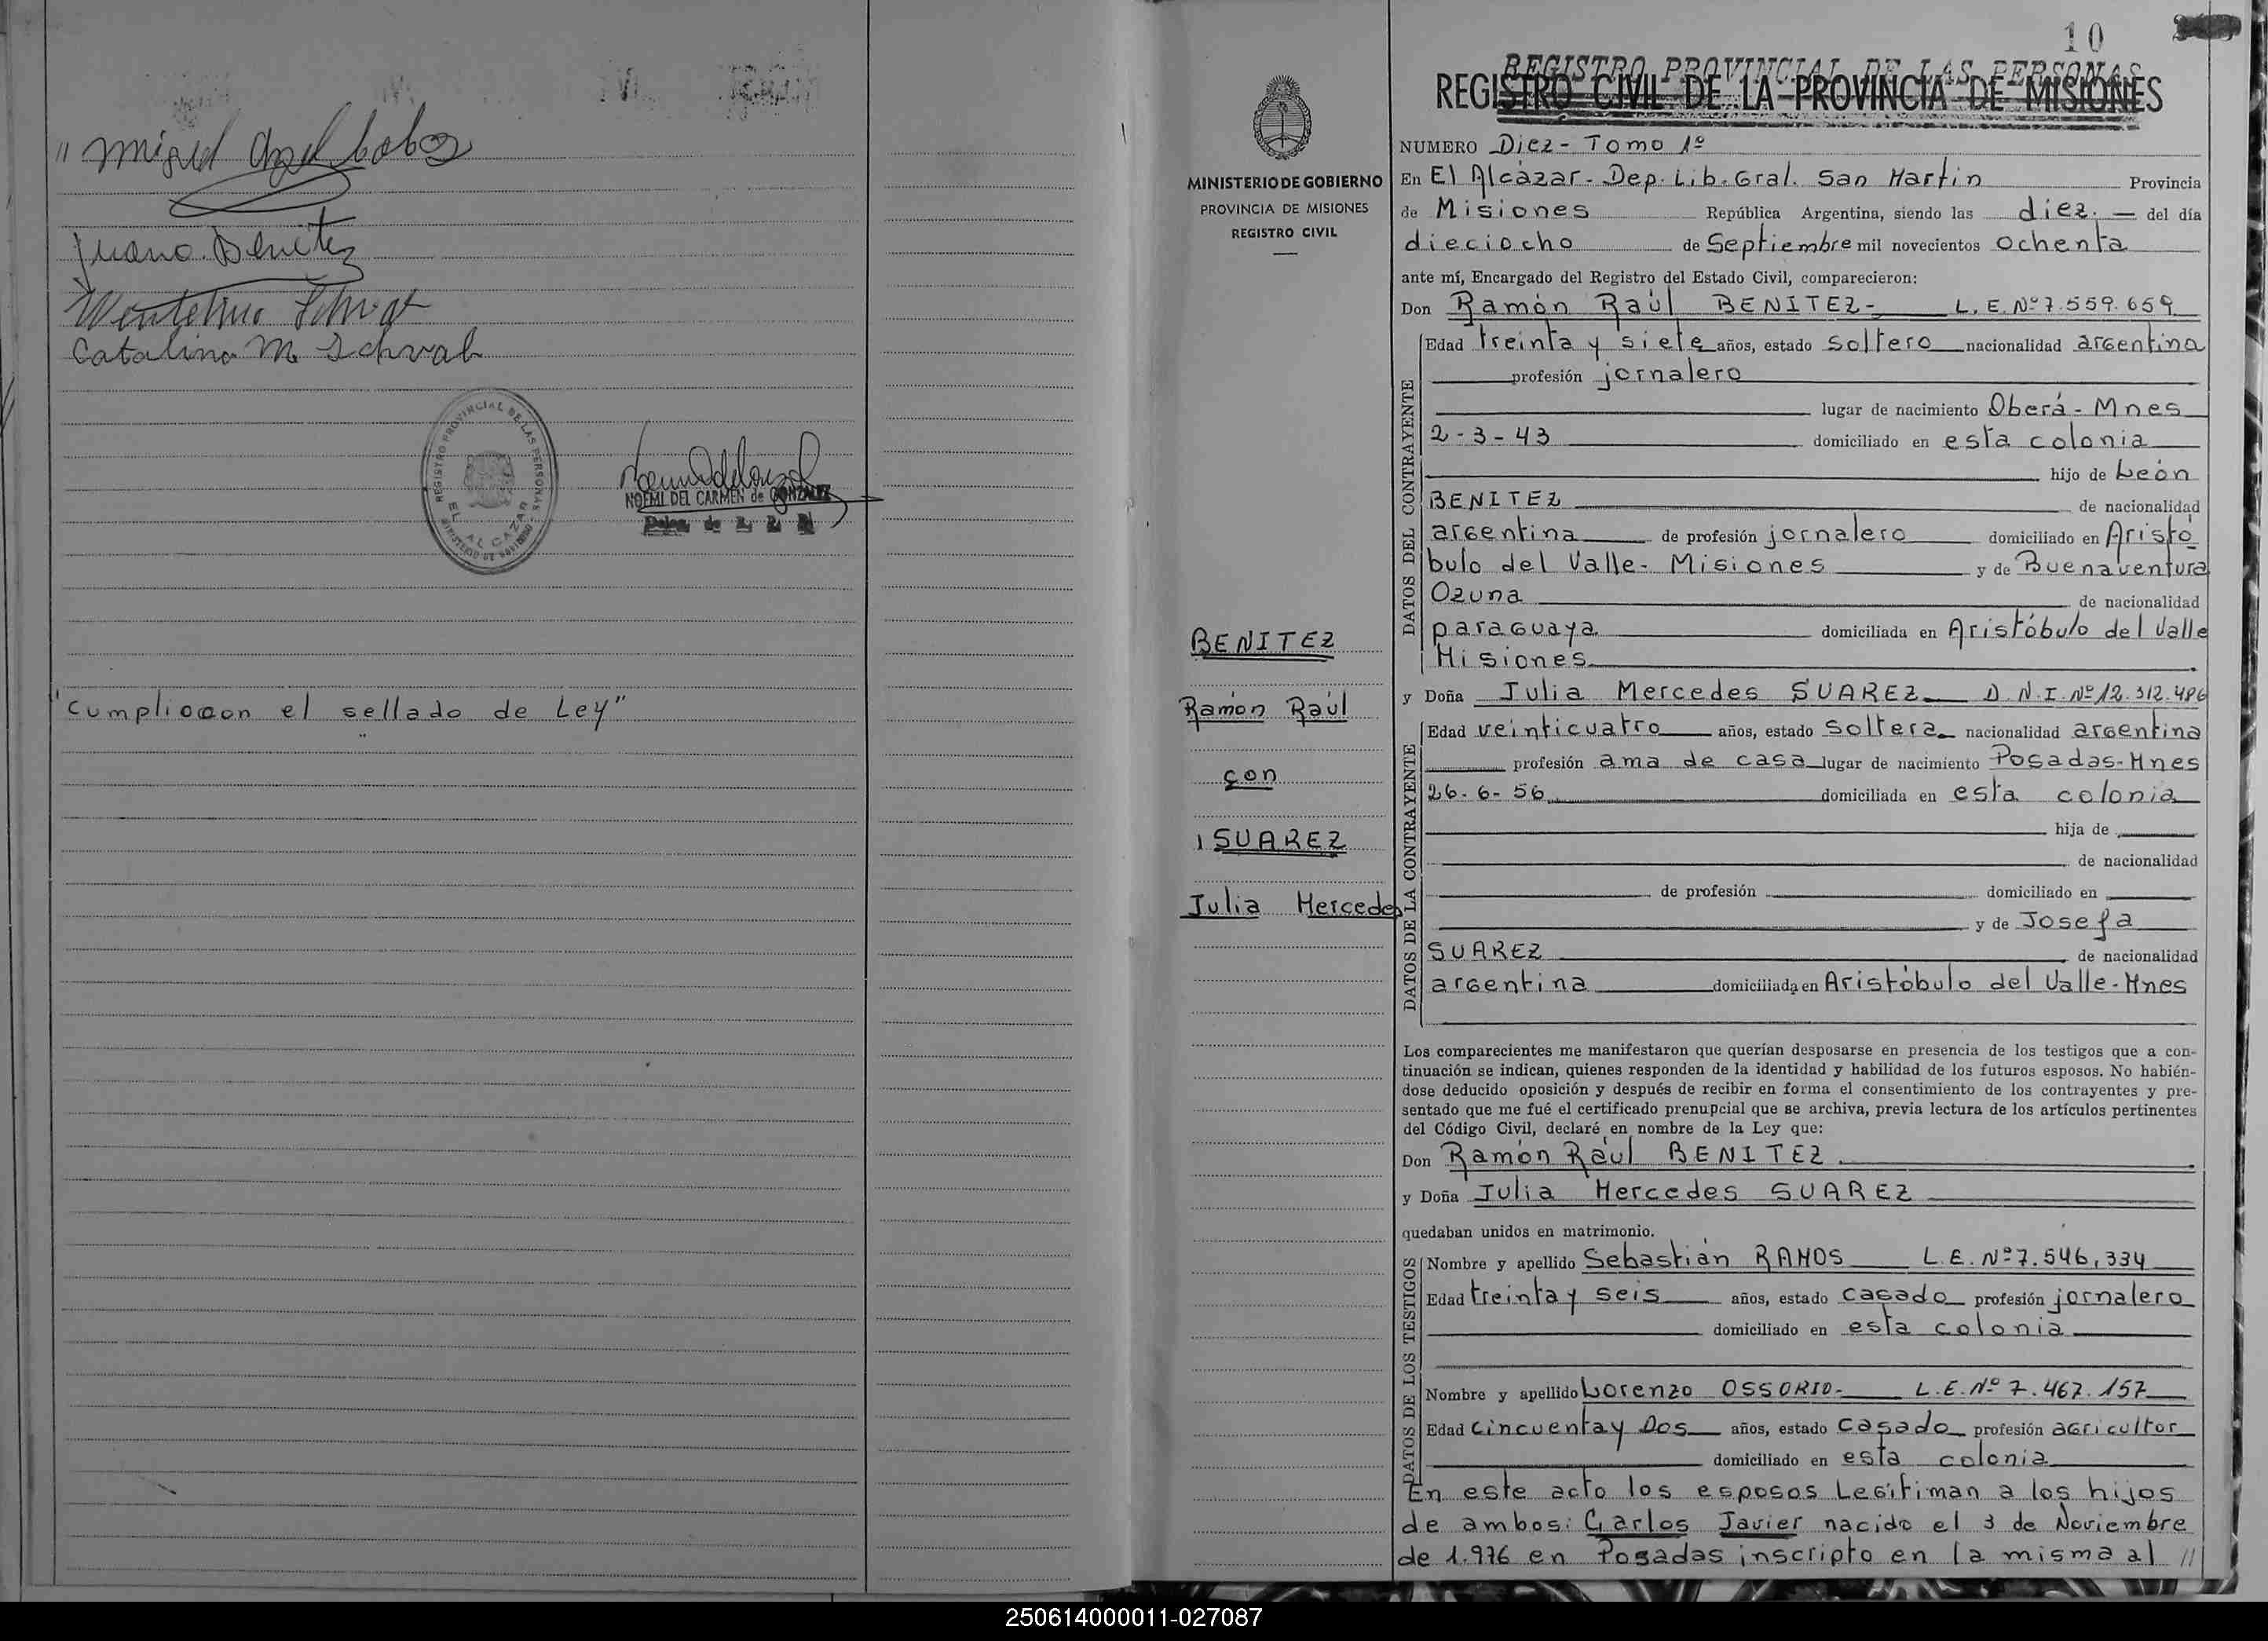 " Miguel Angel
Juano Benitez
Catalina M. Schvab
REGISTRO PROVINCIAL DE LAS PERSONAS
EL ALCAZAR
MINISTERIO DE GOBIERNO
NOEMI DEL CARMEN de GONZALEZ
"Cumpliocon el sellado de Ley"
10
REGISTRO PROVINCIAL DE LAS PERSONAS
REGISTRO CIVIL DE LA PROVINCIA DE MISIONES
MINISTERIO DE GOBIERNO
PROVINCIA DE MISIONES
REGISTRO CIVIL
BENITEZ
Ramón Raúl
con
SUAREZ
Julia Mercedes
NUMERO Diez - Tomo 1º
En El Alcázar - Dep. Lib. Gral. San Martin Provincia
de Misiones República Argentina, siendo las diez. — del día
dieciocho de Septiembre mil novecientos ochenta
ante mí, Encargado del Registro del Estado Civil, comparecieron:
Don Ramón Raúl BENITEZ - L. E. Nº 7.559.659
DATOS DEL CONTRAYENTE
Edad treinta y siete años, estado soltero nacionalidad argentina
profesión jornalero
lugar de nacimiento Oberá - Mnes
2-3-43 domiciliado en esta colonia
hijo de León
BENITEZ de nacionalidad
argentina de profesión jornalero domiciliado en Aristó
bulo del Valle - Misiones y de Buenaventura
Ozuna de nacionalidad
paraguaya domiciliada en Aristóbulo del Valle
Misiones
y Doña Julia Mercedes SUAREZ D.N.I. Nº 12.312.486
DATOS DE LA CONTRAYENTE
Edad veinticuatro años, estado soltera nacionalidad argentina
profesión ama de casa lugar de nacimiento Posadas-Mnes
26-6-56 domiciliada en esta colonia
hija de
de nacionalidad
de profesión domiciliado en
y de Josefa
SUAREZ de nacionalidad
argentina domiciliada en Aristóbulo del Valle - Mnes
Los comparecientes me manifestaron que querían desposarse en presencia de los testigos que a con-
tinuación se indican, quienes responden de la identidad y habilidad de los futuros esposos. No habién-
dose deducido oposición y después de recibir en forma el consentimiento de los contrayentes y pre-
sentado que me fué el certificado prenupcial que se archiva, previa lectura de los artículos pertinentes
del Código Civil, declaré en nombre de la Ley que:
Don Ramón Raúl BENITEZ
y Doña Julia Mercedes SUAREZ
quedaban unidos en matrimonio.
DATOS DE LOS TESTIGOS
Nombre y apellido Sebastián RAMOS L.E. Nº 7.546,334
Edad treinta y seis años, estado casado profesión jornalero
domiciliado en esta colonia
Nombre y apellido Lorenzo OSSORIO - L.E. Nº 7.467.157
Edad cincuenta y Dos años, estado casado profesión agricultor
domiciliado en esta colonia
En este acto los esposos Legitiman a los hijos
de ambos: Carlos Javier nacido el 3 de Noviembre
de 1.976 en Posadas inscripto en la misma al //
250614000011-027087